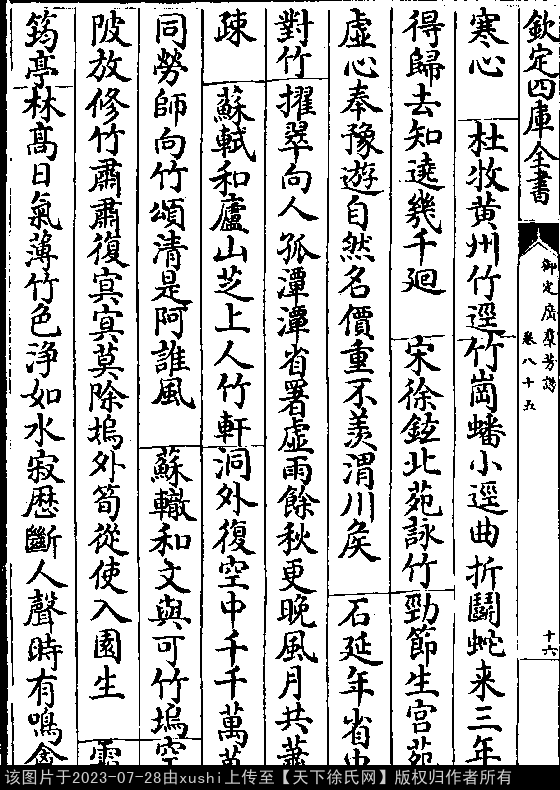 欽定四庫全書
御定廣羣芳譜
卷八十五
十六
寒心 杜牧黄州竹逕竹崗蟠小逕曲折鬭蛇来三年
得歸去知遶幾千廻 宋徐鉉北苑詠竹勁節生宫苑
虚心奉豫遊自然名價重不羡渭川矦 石延年省中
對竹擢翠向人孤潭潭省署虚雨餘秋更晚風月共蕭
疎 蘇軾和廬山芝上人竹軒洞外復空中千千萬萬
同勞師向竹頌清是阿誰風 蘇轍和文與可竹塢空
陂放修竹肅肅復冥冥莫除塢外筍從使入園生
筠亭林髙日氣薄竹色浄如水寂歴斷人聲時有鳴禽
该图片于2023-07-28由xushi上传至【天下徐氏网】版权归作者所有